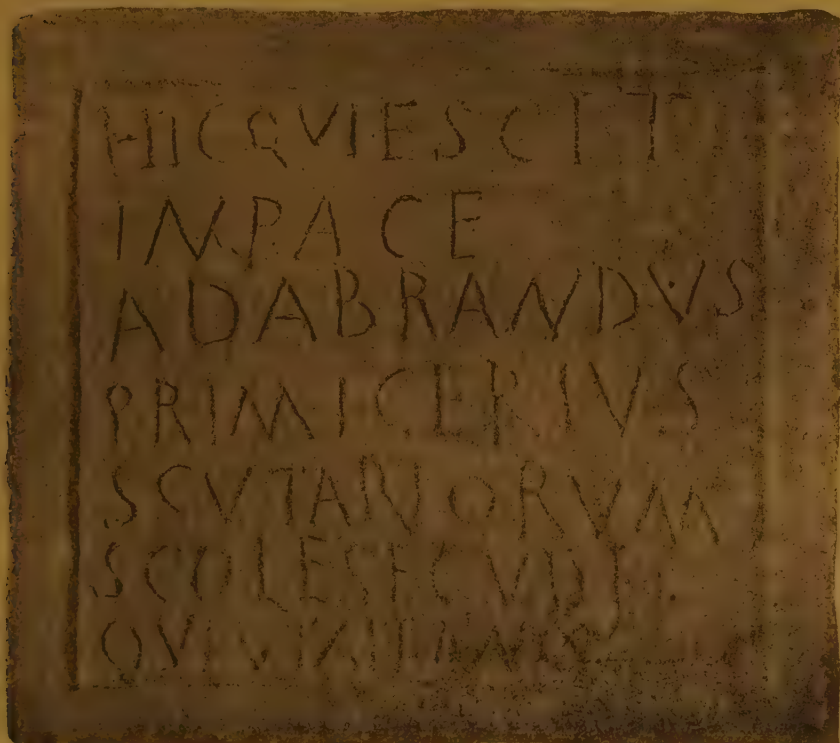 HIC QVIESCIT
IN PACE
ADABRANDVS
PRIMICERIVS
SCVTARIORVM
SCOLE
QVI VIXIT ANNIS